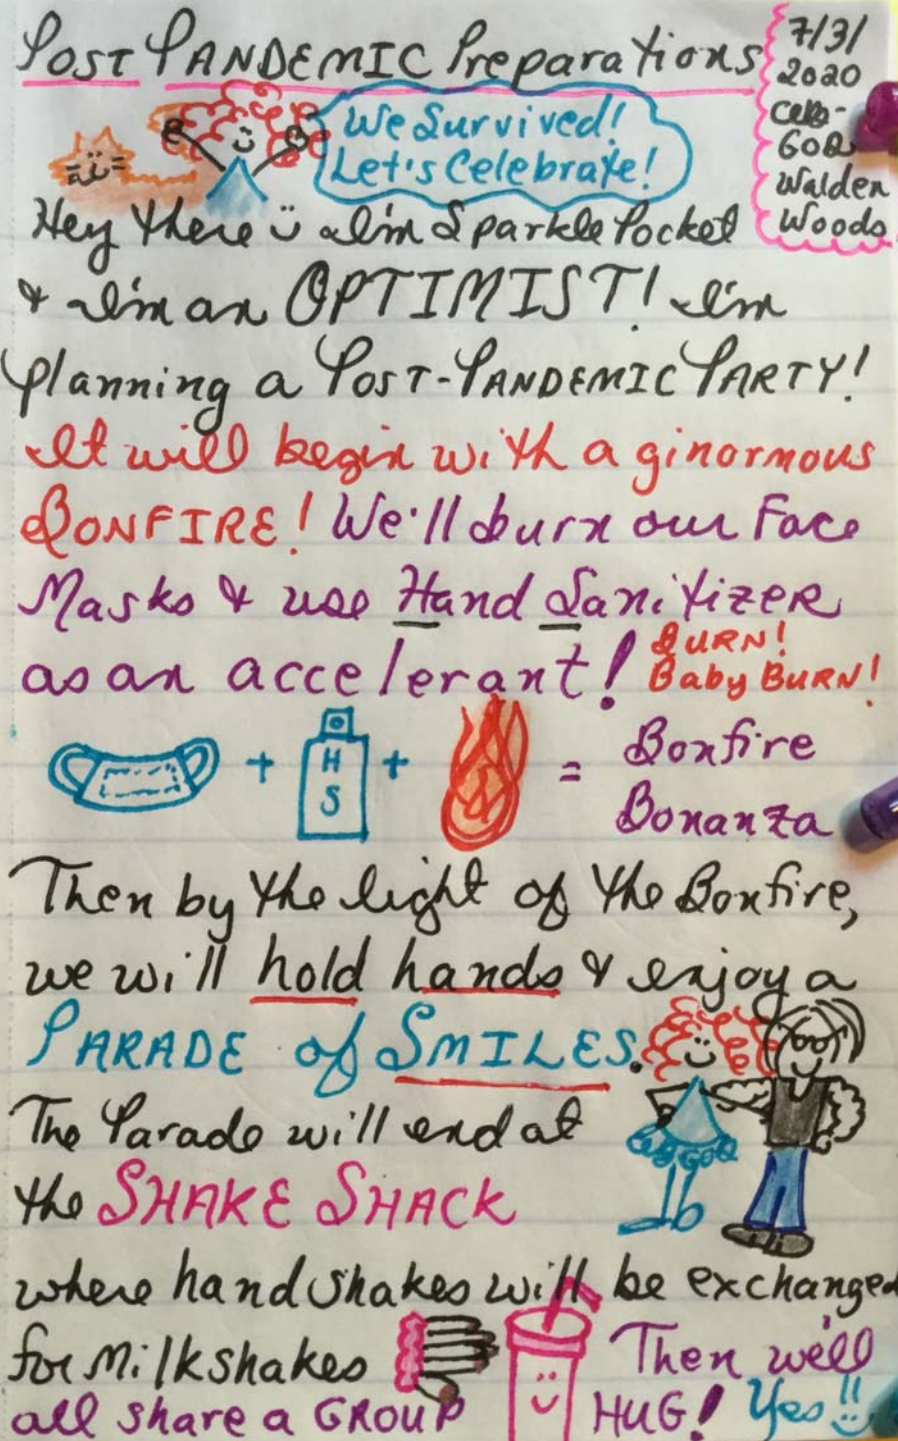 Post Pandemic Preparations
7/3/
2020
GOQ
Walden
Woods
We Survived!
Let's Celebrate!
Hey there I'm Sparkle Pocket
& I'm an OPTIMIST! I'm
planning a Post-Pandemic Party!
It will begin with a ginormous
BONFIRE! We'll burn our Face
Masks & use Hand Sanitizer
as an accelerant!
BURN!
Baby BURN!
+ H S + = Bonfire
Bonanza
Then by the light of the Bonfire,
we will hold hands & enjoy a
PARADE of SMILES.
The Parade will end at
the SHAKE SHACK
where handshakes will be exchanged
for Milkshakes
Then we'll
all share a GROUP HUG! Yes!!